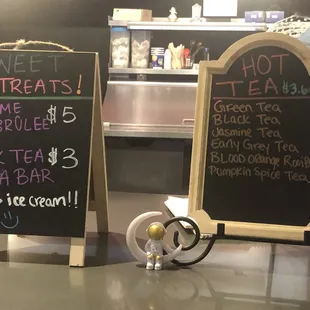 WEET
TREATS!
ME $5
BRÛLÉE
K TEA $3
A BAR
ice cream!!
HOT
TEA $3.
Green Tea
Black Tea
Jasmine Tea
Early Grey Tea
Blood orange Rooib
Pumpkin Spice Tea